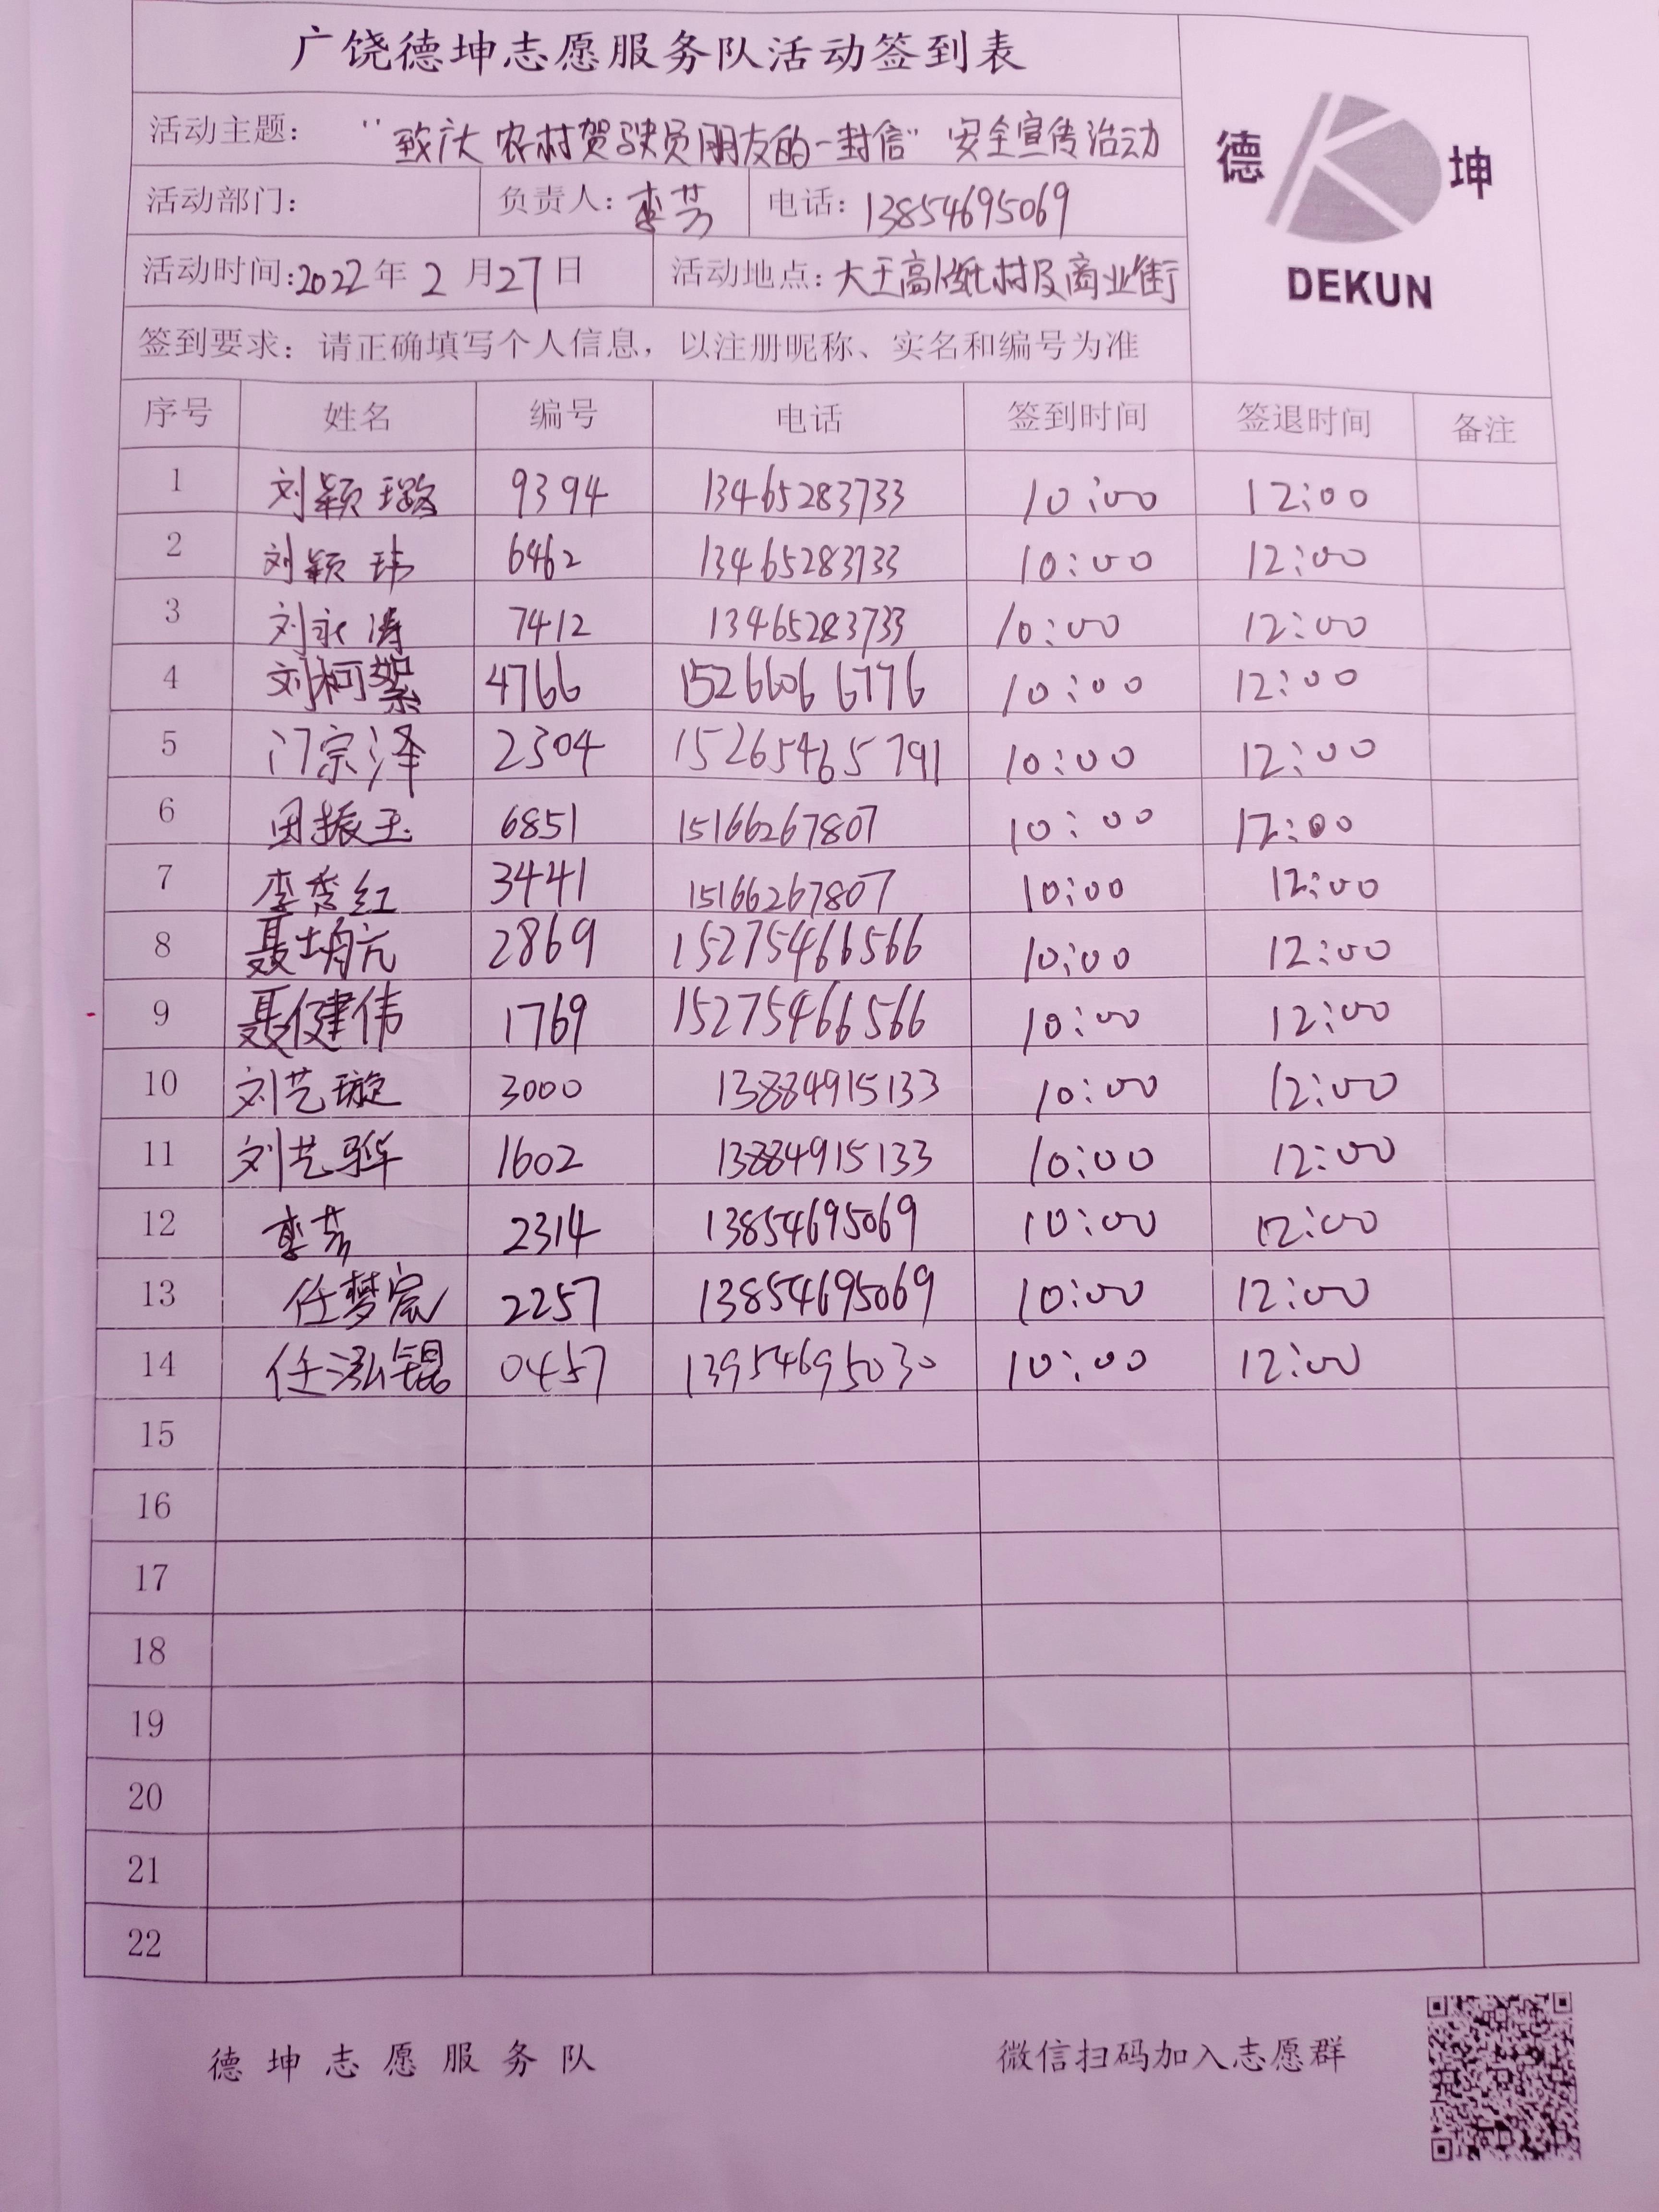 广饶德坤志愿服务队活动签到表
活动主题： "致广大农村驾驶员朋友的一封信" 安全宣传活动
德 坤
DEKUN
活动部门： 负责人：李芳 电话：13854695069
活动时间：2022年2月27日 活动地点：大王高 村及商业街
签到要求：请正确填写个人信息，以注册昵称、实名和编号为准
序号 姓名 编号 电话 签到时间 签退时间 备注
1 刘颖璐 9394 13465283733 10:00 12:00
2 刘颖玮 6462 13465283733 10:00 12:00
3 刘永涛 7412 13465283733 10:00 12:00
4 刘柯絮 4766 15266066776 10:00 12:00
5 门宗泽 2304 15265465791 10:00 12:00
6 田振玉 6851 15166267807 10:00 12:00
7 李秀红 3441 15166267807 10:00 12:00
8 聂堉亢 2869 15275466566 10:00 12:00
9 聂健伟 1769 15275466566 10:00 12:00
10 刘艺璇 3000 13884915133 10:00 12:00
11 刘艺骅 1602 13884915133 10:00 12:00
12 李芳 2314 13854695069 10:00 12:00
13 任梦宸 2257 13854695069 10:00 12:00
14 任泓锟 0457 13954695030 10:00 12:00
15
16
17
18
19
20
21
22
德坤志愿服务队 微信扫码加入志愿群